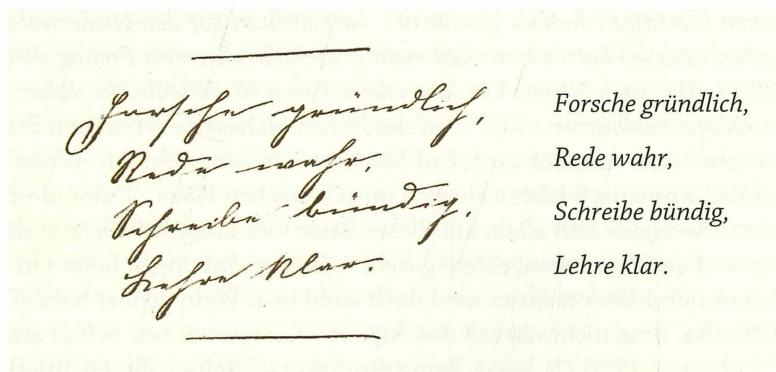 Forsche gründlich,
Rede wahr,
Schreibe bündig,
Lehre klar.
Forsche gründlich,
Rede wahr,
Schreibe bündig,
Lehre klar.